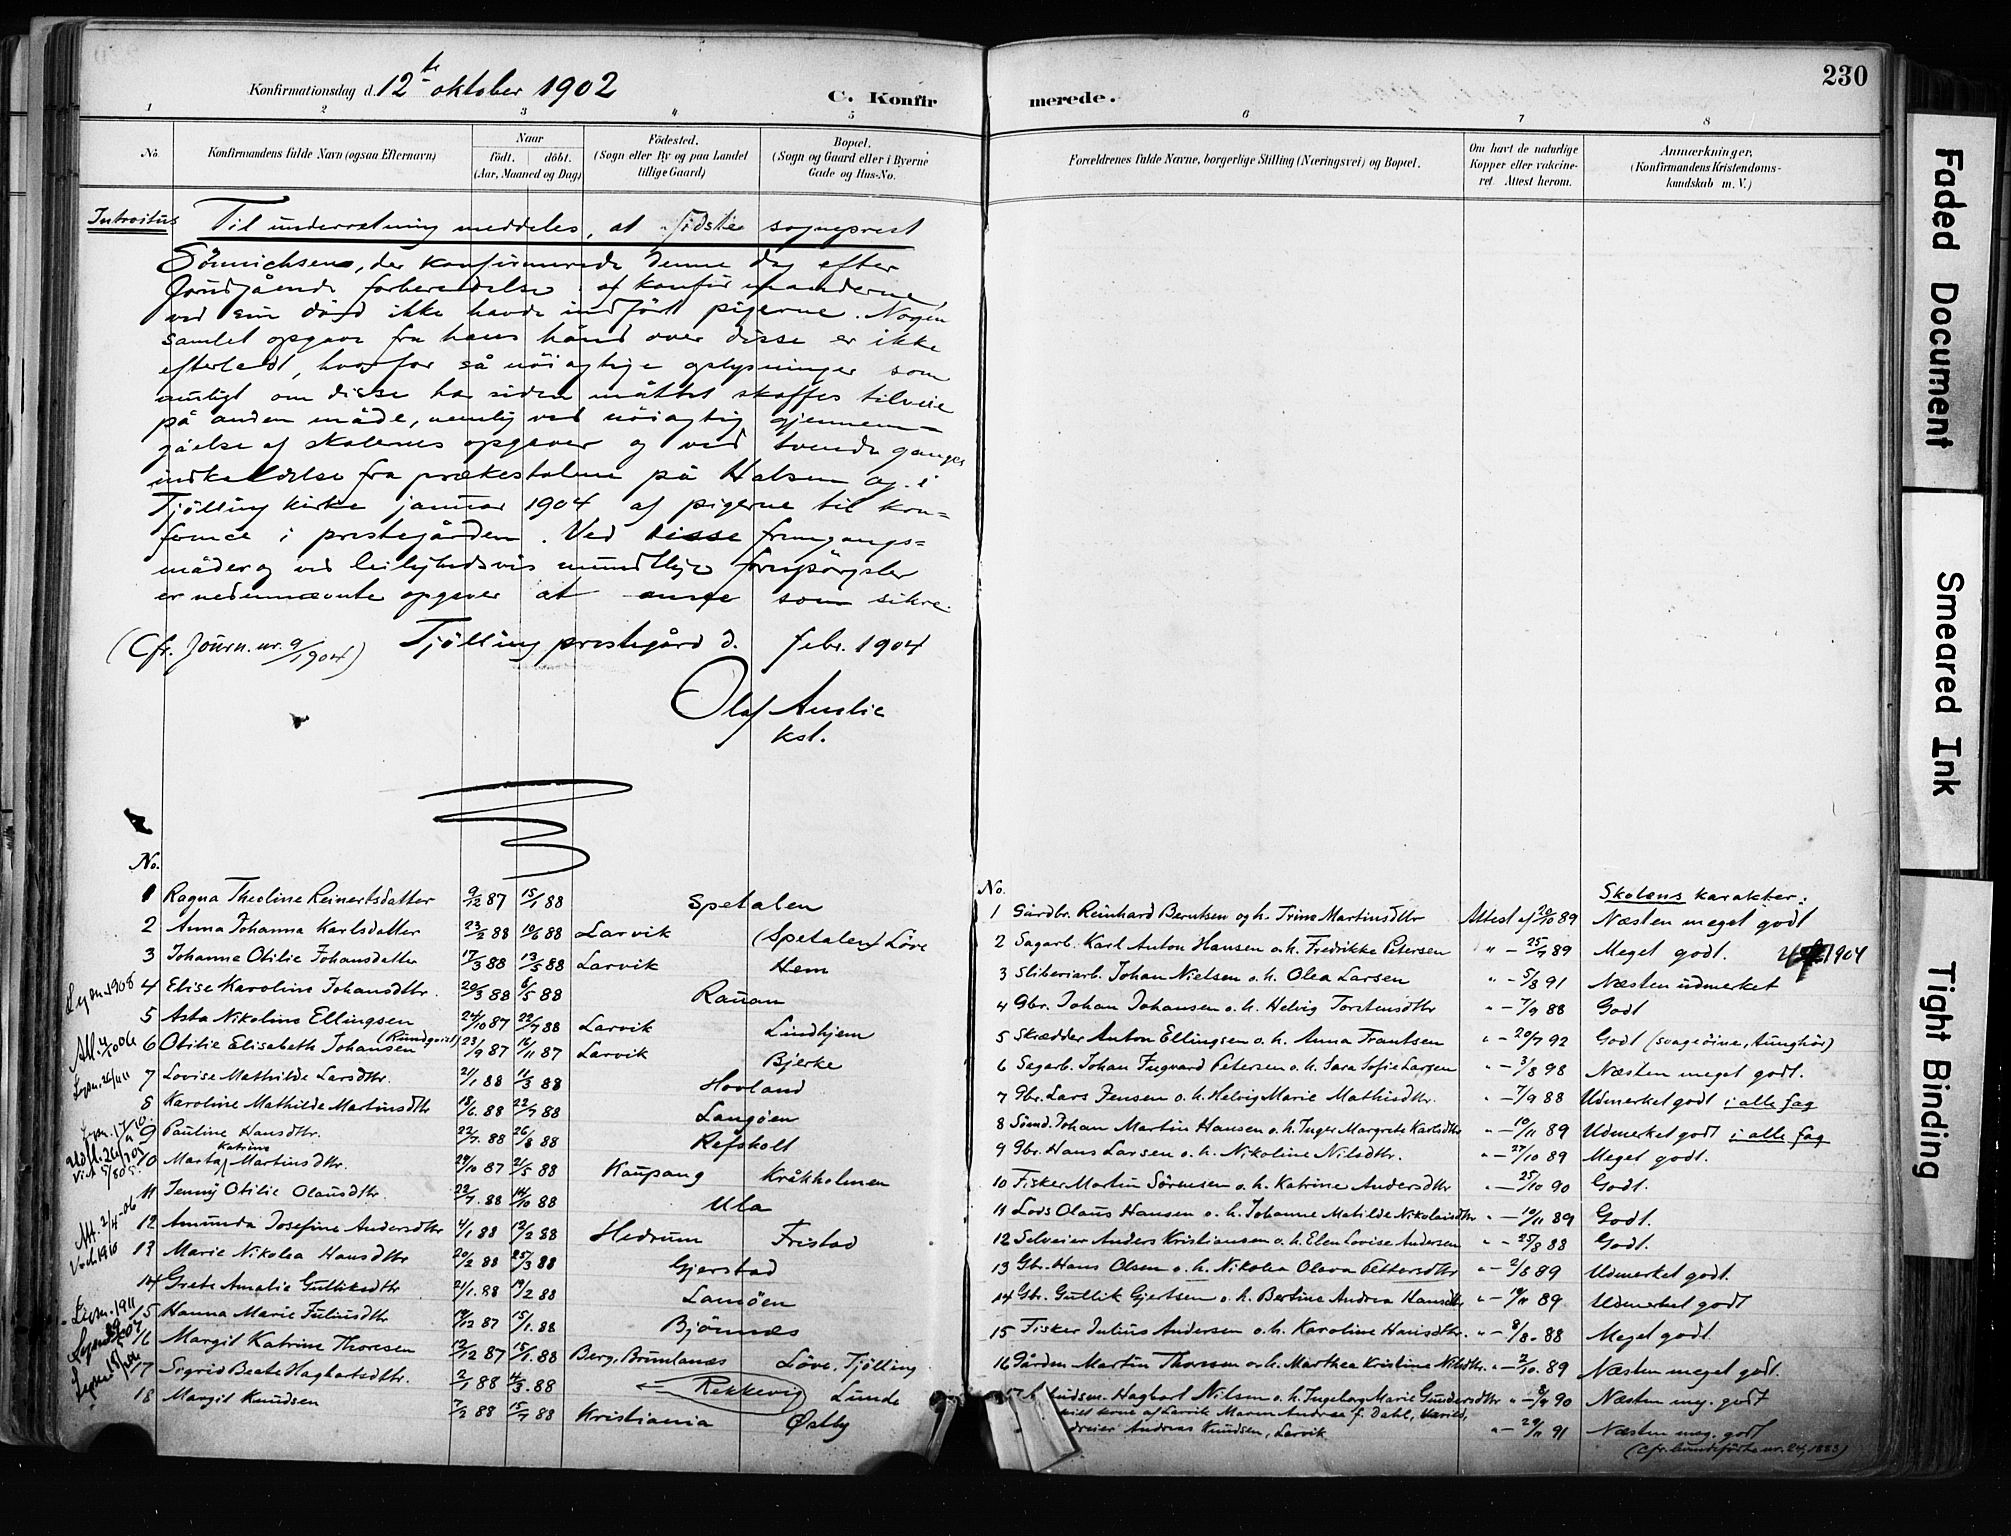 230
Konfirmationsdag d. 12te oktober 1902
C. Konfir merede.
1 2 3 4 5 6 7 8
No.
Konfirmandens fulde Navn (ogsaa Efternavn)
Naar
født. døbt.
(Aar, Maaned og Dag)
Fødested.
(Sogn eller By og paa Landet
tillige Gaard)
Bopæl.
(Sogn og Gaard eller i Byerne
Gade og Hus-No.
Forældrenes fulde Navne, borgerlige Stilling (Næringsvei) og Bopæl.
Om havt de naturlige
Kopper eller vakcine-
ret Attest herom.
Anmærkninger,
(Konfirmandens Kristendoms-
kundskab m. V.)
Introitus
Til underretning meddeles, at sidste sogneprest
Sönnichsen, der konfirmerede denne dag efter
forudgående forberedelse af konfirmanderne,
ved sin död ikke havde indfört pigerne. Nogen
samlet opgave fra hans hånd over disse er ikke
efterladt, hvorfor så nöiagtige oplysninger som
muligt om disse ha siden måttet skaffes tilveie
på anden måde, nemlig ved nöiagtig gjennem-
gåelse af skolernes opgaver og ved tvende ganges
indkaldelse fra prækestolene på Halsen og i
Tjölling kirke januar 1904 af pigerne til kon-
ference i prestegården. Ved disse fremgangs=
måder og ved leilighedsvis mundtlige forespörgsler
er nedennævnte opgaver at anse som sikre.
(Cfr. Journ. nr. 9/1904) Tjölling prestegård d. febr. 1904
Olaf Anslie
kst.
No.
1 Ragna Theoline Reinertsdatter 9/12 87 15/1 88 Spetalen
2 Anna Johanna Karlsdatter 23/2 88 10/6 88 Larvik (Spetalen) Löve
3 Johanne Otilie Johansdatter 17/3 88 13/5 88 Larvik Hem
4 Elise Karoline Johansdtr. 20/3 88 6/5 88 Rauan
5 Asta Nikoline Ellingsen 24/10 87 22/7 88 Larvik Lindhjem
6 Otilie Elisabeth Johansen (Rundqvist) 23/9 87 16/11 87 Larvik Bjerke
7 Lovise Mathilde Larsdtr. 21/1 88 11/3 88 Hovland
8 Karoline Mathilde Martinsdtr 18/6 88 22/7 88 Langöen
9 Pauline Hansdtr. 22/7 88 26/8 88 Refsholt
10 Marta Katrine Martinsdtr. 29/10 87 21/5 88 Kaupang Kråkholmen
11 Jenny Otilie Olausdtr. 22/7 88 14/10 88 Ula
12 Amunda Josefine Andersdtr 4/1 88 12/2 88 Hedrum Fristad
13 Marie Nikolea Hansdtr 20/2 88 25/3 88 Gjerstad
14 Grete Amalie Gulliksdtr 21/1 88 19/2 88 Lamöen
15 Hanna Marie Juliusdtr 14/12 87 15/1 88 Björnnes
16 Margit Katrine Thoresen 12/12 87 15/1 88 Berg, Brunlanes Löve, Tjölling
17 Sigrid Beate Haghartsdtr. 2/1 88 4/3 88 Rekkevig Lunde
18 Margit Knudsen 7/2 88 15/7 88 Kristiania Østby
No.
Skolens karakter:
1 Gårdbr. Reinhard Berntsen og h. Trine Martinsdtr Attest af 20/10 89 Næsten meget godt
2 Sagarb. Karl Anton Hansen o.h. Fredrikke Petersen " - 25/7 89 Meget godt. 1904
3 Sliberiarb. Johan Nielsen o.h. Olea Larsen " - 5/8 91 Næsten udmerket
4 Gbr. Johan Johansen o.h. Helvig Torstensdtr " - 7/9 88 Godt
5 Skrædder Anton Ellingsen o.h. Anna Frantsen " - 20/7 92 Godt (svage öine, tunghör)
6 Sagarb. Johan Ingvard Petersen o.h. Sara Sofie Larsen " - 3/8 98 Næsten meget godt.
7 Gbr. Lars Jensen o.h. Helvig Marie Mathisdtr. " - 7/9 88 Udmerket godt i alle fag
8 Sömd. Johan Martin Hansen o.h. Inger Margrete Karlsdtr " - 10/11 89 Udmerket godt i alle fag
9 Gbr. Hans Larsen o.h. Nikoline Nilsdtr. " - 27/10 89 Meget godt.
10 Fisker Martin Sörensen o.h. Katrine Andersdtr " - 25/10 90 Godt.
11 Lods Olaus Hansen o.h. Johanne Matilde Nikolaisdtr " - 10/11 89 Godt.
12 Selveier Anders Kristiansen o.h. Elen Lovise Andersen " - 25/8 88 Godt.
13 Gbr. Hans Olsen o.h. Nikolea Olava Pettersdtr " - 2/8 89 Udmerket godt.
14 Gbr. Gullik Gjertsen o.h. Bertine Andrea Hansdtr " - 10/11 89 Udmerket godt
15 Fisker Julius Andersen o.h. Karoline Hansdtr. " - 8/8 88 Meget godt.
16 Gårdm. Martin Thoresen o.h. Marthea Kristine Nilsdtr. " - 2/10 89 Næsten meget godt.
Haghart Nilsen o.h. Ingeborg Marie Gundersdtr " - 90 Næsten meg. godt
kone af Larvik Maren Andrea f. Dahl,
Andreas Knudsen, Larvik " - 29/11 91 Næsten meg. godt
Faded Document
Smeared Ink
Tight Binding